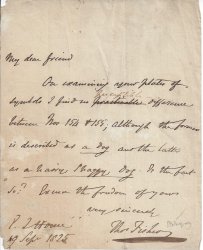 My dear friend
On examining your plates of
symbols I find no difference
between Nos 154 & 155, although the former
is described as a Dog and the latter
as a Shaggy Dog. Is the fact
so? Excuse the freedom of yours
very sincerely
Thos Fisher
19 Sepr 1825